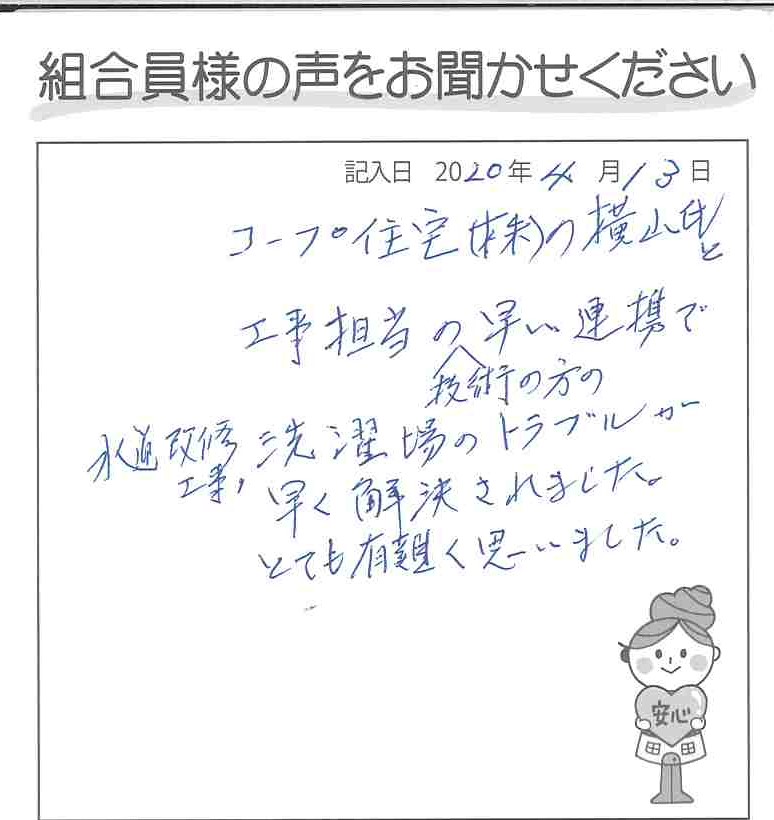 組合員様の声をお聞かせください
記入日 2020年4月13日
コープ住宅(株)の横山氏と
工事担当の早い連携で
技術の方の
水道改修
工事,
洗濯場のトラブルが
早く解決されました。
とても有難く思いました。
安心